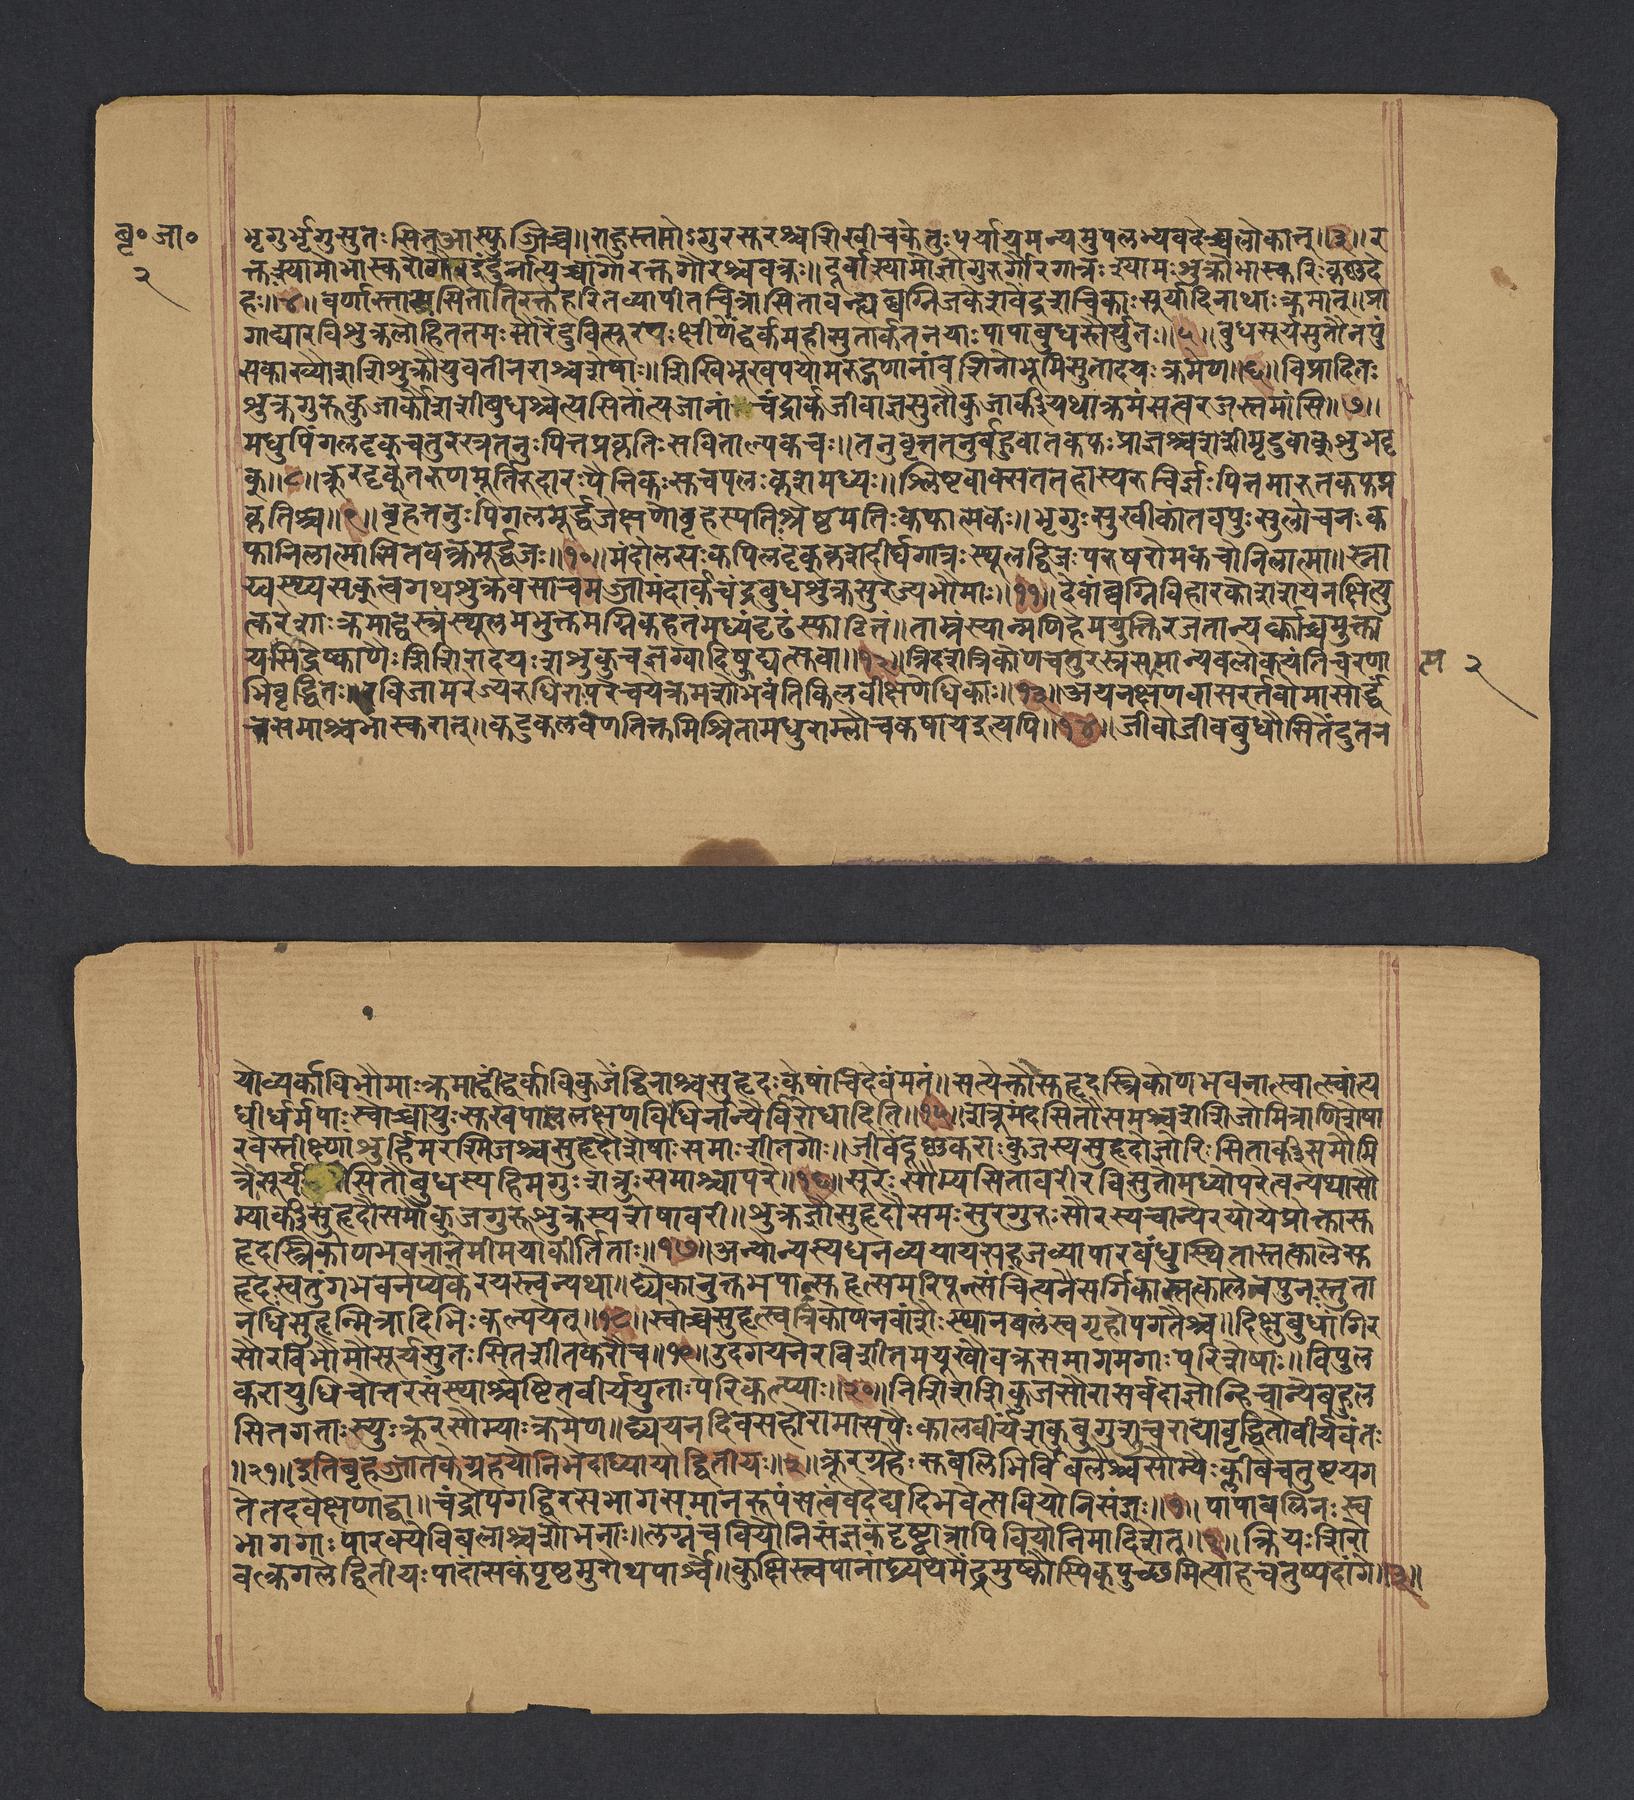 बृ॰जा॰
२
भृगुर्भृगुसुतःसितआस्फुजिच्च॥राहुस्तमोऽगुरसुरश्चशिखीचकेतुःपर्यायमन्यमुपलभ्यवदेच्चलोकात्॥३॥र
क्तश्यामोभास्करोगौरइंदुर्नात्युच्चांगोरक्तगौरश्चवक्रः॥दूर्वाश्यामोज्ञोगुरुर्गौरगात्रःश्यामःशुक्रोभास्करिःकृष्णदे
हः॥४॥वर्णास्ताम्रसितातिरक्तहरितव्यापीतचित्रासितावन्ह्यंब्वग्निजकेशवेंद्रशचिकाःसूर्यादिनाथाःक्रमात्॥प्रा
गाद्यारविशुक्रलोहिततमःसौरेंदुवित्सूरयःक्षीणेंद्वर्कमहीसुतार्कतनयाःपापाबुधस्तैर्युतः॥५॥बुधसूर्यसुतौनपुं
सकाख्यौशशिशुक्रौयुवतीनराश्चशेषाः॥शिखिभूखपयोमरुद्गणानांवशिनोभूमिसुतादयःक्रमेण॥६॥विप्रादितः
शुक्रगुरूकुजार्कौशशीबुधश्चेत्यसितोंत्यजानां चंद्रार्कजीवाज्ञसुतौकुजार्कीयथाक्रमंसत्वरजस्तमांसि॥७॥
मधुपिंगलदृक्चतुरस्रतनुःपित्तप्रकृतिःसविताल्पकचः॥तनुवृत्ततनुर्बहुवातकफःप्राज्ञश्चशशीमृदुवाक्शुभदृ
क्॥८॥क्रूरदृक्तरुणमूर्तिरुदारःपैत्तिकःसुचपलःकृशमध्यः॥श्लिष्टवाक्सततहास्यरुचिर्ज्ञःपित्तमारुतकफप्र
कृतिश्च॥९॥बृहत्तनुःपिंगलमूर्द्धजेक्षणोबृहस्पतिःश्रेष्ठमतिःकफात्मकः॥भृगुःसुखीकांतवपुःसुलोचनःक
फानिलात्मासितवक्रमूर्द्धजः॥१०॥मंदोलसःकपिलदृक्कृशदीर्घगात्रःस्थूलद्विजःपरुषरोमकचोनिलात्मा॥स्ना
य्वस्थ्यसृक्त्वगथशुक्रवसाचमज्जामंदार्कचंद्रबुधशुक्रसुरेज्यभौमाः॥११॥देवांब्वग्निविहारकोशशयनक्षित्यु
त्करेशाःक्रमाद्वस्त्रंस्थूलमभुक्तमग्निकहतंमध्यंदृढंस्फाटितं॥ताम्रंस्यान्मणिहेमयुक्तिरजतान्यर्काच्चमुक्ता
यसिद्रेष्काणैःशिशिरादयःशशुरुचज्ञग्वादिषुद्यत्सुवा॥१२॥त्रिदशत्रिकोणचतुरस्रसप्तमान्यवलोकयंतिचरणा
भिवृद्धितः॥रविजामरेज्यरुधिराःपरेचयेक्रमशोभवंतिकिलवीक्षणेधिकाः॥१३॥अयनक्षणवासरर्तवोमासोर्द्धं
चसमाश्चभास्करात्॥कटुकलवणतिक्तमिश्रितामधुराम्लौचकषायइत्यपि॥१४॥जीवोजीवबुधौसितेंदुतन
म २
योव्यर्काविभौमाःक्रमाद्वींद्वर्काविकुजेंद्विनाश्चसुहृदःकेषांचिदेवंमतं॥सत्येक्तौसुहृदस्त्रिकोणभवनात्स्वात्स्वांत्य
धीर्धर्मपाःस्वोच्चायुःसुखपाःस्वलक्षणविधेर्नान्यैर्विरोधादिति॥१५॥शत्रूमंदसितौसमश्चशशिजोमित्राणिशेषा
रवेस्तीक्ष्णांशुर्हिमरश्मिजश्चसुहृदौशेषाःसमाःशीतगोः॥जीवेंदूष्णकराःकुजस्यसुहृदोज्ञोरिःसितार्कीसमौमि
त्रेसूर्य सितौबुधस्यहिमगुःशत्रुःसमाश्चापरे॥१६॥सूरेःसौम्यसितावरीरविसुतोमध्योपरेत्वन्यथासौ
म्यार्कीसुहृदौसमौकुजगुरूशुक्रस्यशेषावरी॥शुक्रज्ञौसुहृदौसमःसुरगुरुःसौरस्यचान्येरयोयेप्रोक्ताःसु
हृदस्त्रिकोणभवनात्तेमीमयाकीर्तिताः॥१७॥अन्योन्यस्यधनव्ययायसहजव्यापारबंधुस्थितास्तत्कालेसु
हृदःस्वतुंगभवनेप्येकेरयस्त्वन्यथा॥द्व्येकानुक्तभपान्सुहृत्समरिपून्संचिंत्यनैसर्गिकांस्तत्कालेचपुनस्तुता
नधिसुहृन्मित्रादिभिःकल्पयेत्॥१८॥स्वोच्चसुहृत्स्वत्रिकोणनवांशैःस्थानबलंस्वगृहोपगतैश्च॥दिक्षुबुधांगिर
सौरविभौमौसूर्यसुतःसितशीतकरौच॥१९॥उदगयनेरविशीतमयूखौवक्रसमागमगाःपरिशेषाः॥विपुल
करायुधिचोत्तरसंस्थाश्चेष्टितवीर्ययुताःपरिकल्प्याः॥२०॥निशिशशिकुजसौरासर्वदाज्ञोन्हिचान्येबहुल
सितगताःस्युःक्रूरसौम्याःक्रमेण॥द्व्ययनदिवसहोरामासपैःकालवीर्यंशकुबुगुशुचराद्यावृद्धितोवीर्यवंतः
॥२१॥इतिबृहज्जातकेग्रहयोनिभेदाध्यायोद्वितीयः॥२॥क्रूरग्रहैःसुबलिभिर्विबलैश्चसौम्यैःक्लीबेचतुष्टयग
तेतदवेक्षणाद्वा॥चंद्रोपगद्विरसभागसमानरूपंसत्वंवदेद्यदिभवेत्सवियोनिसंज्ञः॥१॥पापाबलिनःस्व
भागगाःपारक्येविबलाश्चशोभनाः॥लग्नंचवियोनिसंज्ञकंदृष्ट्वात्रापिवियोनिमादिशेत्॥२॥क्रियःशिरो
वक्रगलेद्वितीयःपादांसकंपृष्ठमुरोथपार्श्वे॥कुक्षिस्त्वपानांघ्र्यथमेंढ्रमुष्कौस्फिक्पुच्छमित्याहचतुष्पदांगे॥३॥